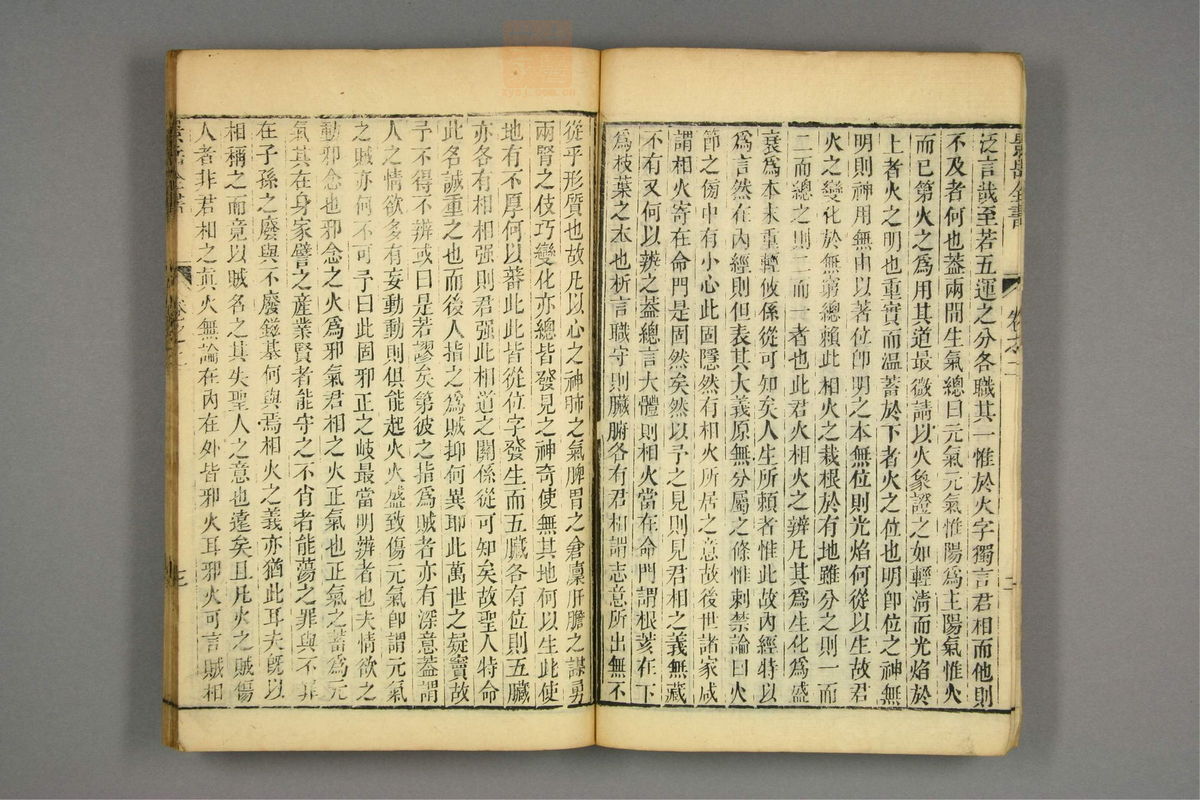 泛言哉至若五運之分各職其一惟於火字獨言君相而他則
不及者何也蓋兩間生氣總曰元氣元氣惟陽爲主陽氣惟火
而已第火之爲用其道最微請以火象證之如輕清而光焰於
上者火之明也重實而溫蓄於下者火之位也明卽位之神無
明則神用無由以著位卽明之本無位則光焰何從以生故君
火之變化於無窮總賴此相火之栽根於有地雖分之則一而
二而總之則二而一者也此君火相火之辨凡其爲生化爲盛
衰爲本末重輕攸係從可知矣人生所賴者惟此故內經特以
爲言然在內經則但表其大義原無分屬之條惟刺禁論曰火
節之傍中有小心此固隱然有相火所居之意故後世諸家咸
謂相火寄在命門是固然矣然以予之見則見君相之義無藏
不有又何以辨之蓋總言大體則相火當在命門謂根荄在下
爲枝葉之本也析言職守則臟腑各有君相謂志意所出無不
從乎形質也故凡以心之神肺之氣脾胃之倉廩肝膽之謀勇
兩腎之伎巧變化亦總皆發見之神奇使無其地何以生此使
地有不厚何以蕃此此皆從位字發生而五臟各有位則五臟
亦各有相相强則君强此相道之關係從可知矣故聖人特命
此名誠重之也而後人指之爲賊抑何異耶此萬世之疑竇故
予不得不辨或曰是若謬矣第彼之指爲賊者亦有深意蓋謂
人之情欲多有妄動動則俱能起火火盛致傷元氣卽謂元氣
之賊亦何不可予曰此固邪正之岐最當明辨者也夫情欲之
動邪念也邪念之火爲邪氣君相之火正氣也正氣之蓄爲元
氣其在身家譬之産業賢者能守之不肖者能蕩之罪與不罪
在子孫之廢與不廢鎡基何與焉相火之義亦猶此耳夫旣以
相稱之而竟以賊名之其失聖人之意也遠矣且凡火之賊傷
人者非君相之眞火無論在內在外皆邪火耳邪火可言賊相